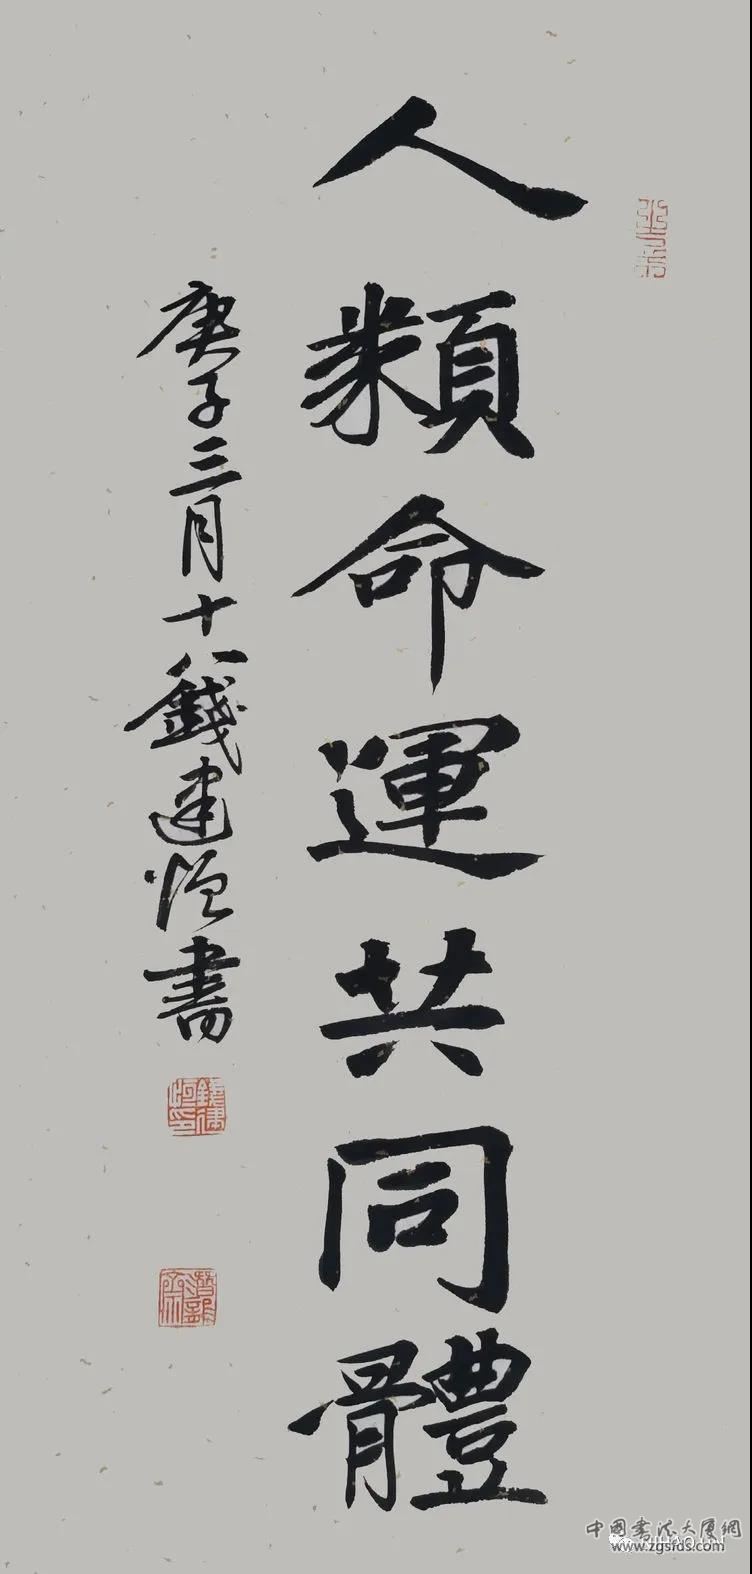 人類命運共同體
庚子三月十八錢建恒書
中国書法大厦網
www.zgsfds.com